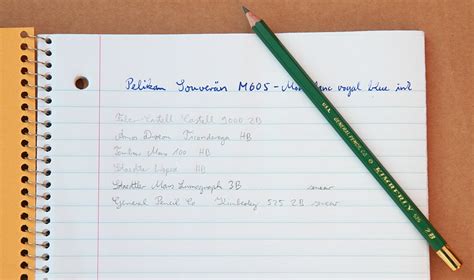 Pelikan Souverän M605 - Mont blanc royal blue ink
Faber Castell Castell 9000 2B
Amos Dixon Ticonderoga HB
Tombow Mono 100 HB
Staedtler HB
Staedtler Mars Lumograph 3B smear
General Pencil Co Kimberley 525 2B smear
U.S.A. GENERAL PENCIL CO. KIMBERLY 525 2B